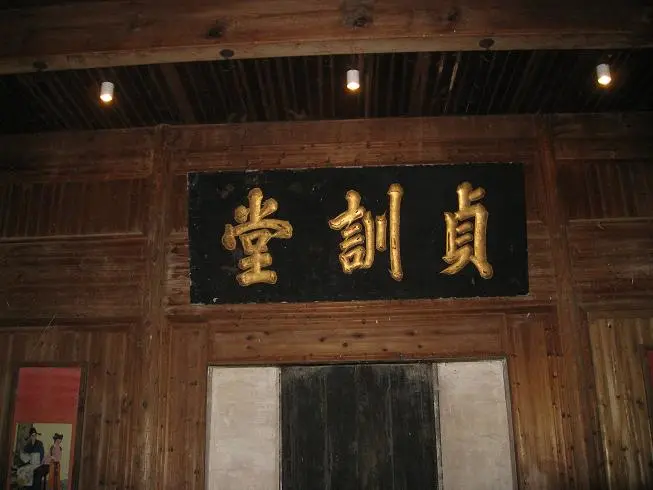 貞訓堂